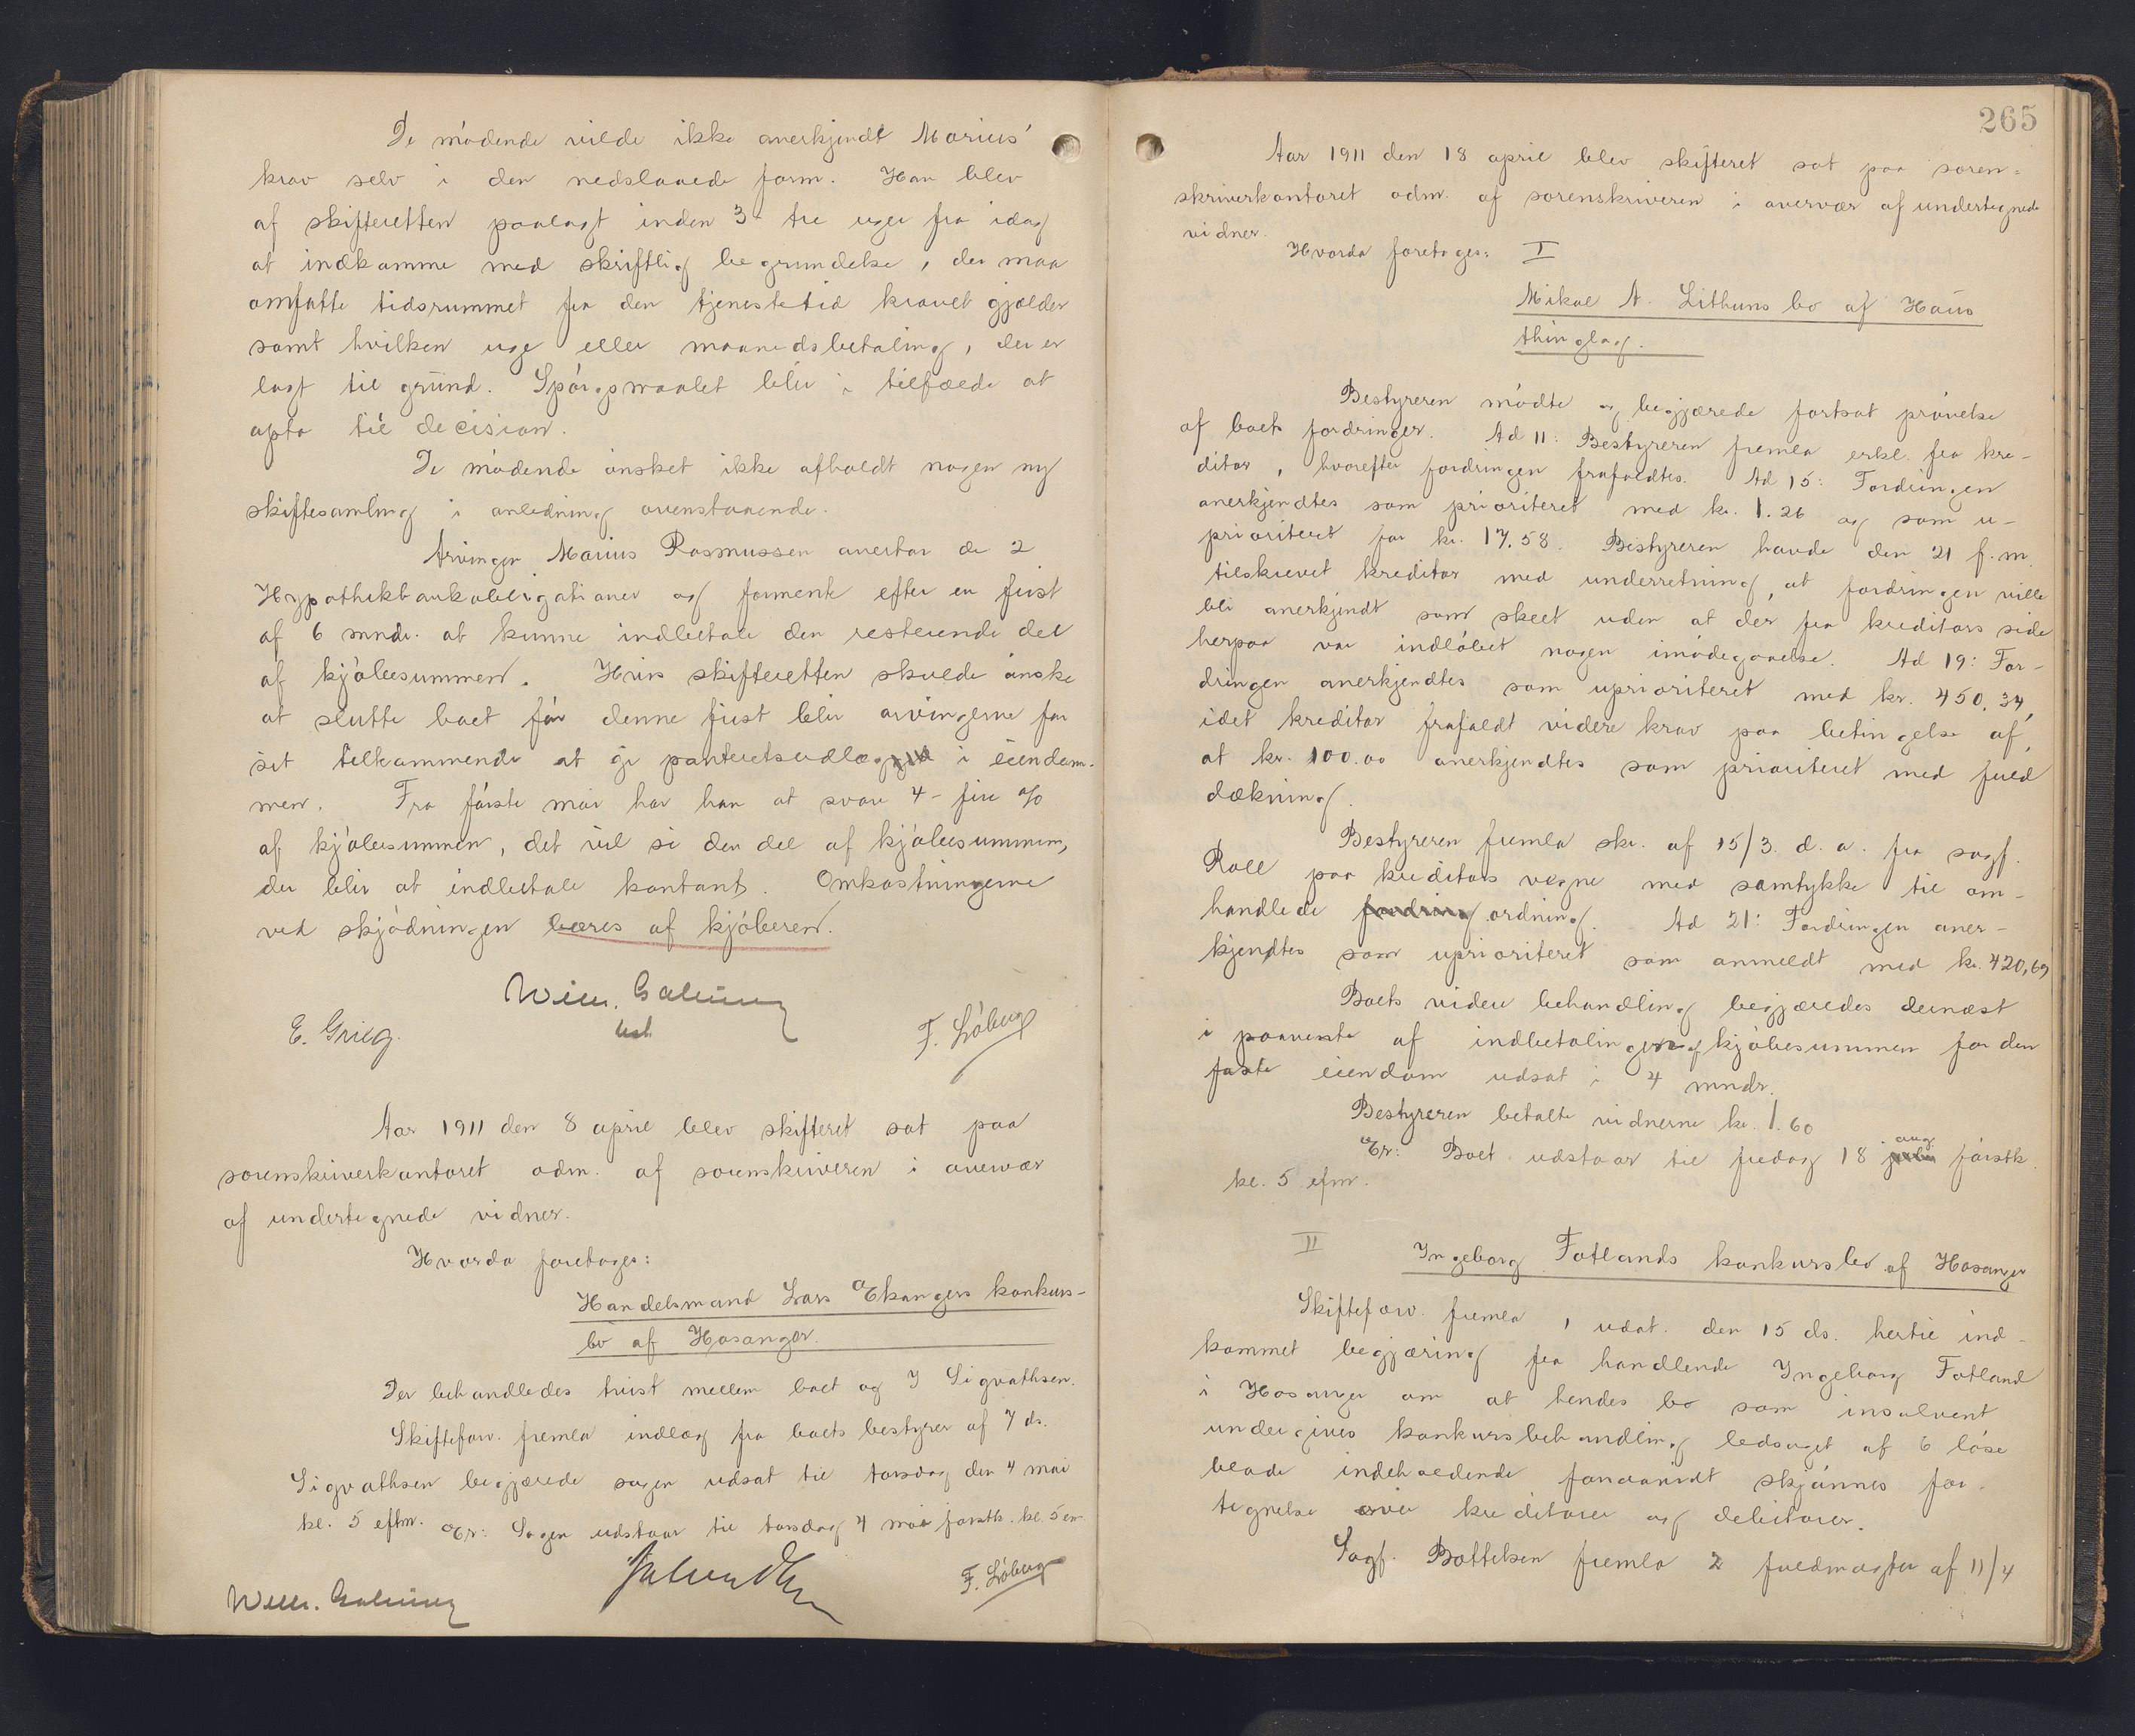 De mødende vilde ikke anerkjendt Marius'
krav selv i den nedslaaede form. Han blev
af skifteretten paalagt inden 3 - tre uger fra idag
at indkomme med skriftlig begrundelse, der maa
omfatte tidsrummet fra den tjenestetid kravet gjælder
samt hvilken uge eller maanedsbetaling, der er
lagt til grund. Spørgsmaalet blir i tilfælde at
opta til decision.
De mødende ønsket ikke afholdt nogen ny
skiftesamling i anledning ovenstaaende.
Arvingen Marius Rasmussen overtar de 2
Hypothekbankobligationer og formente efter en frist
af 6 mndr. at kunne indbetale den resterende del
af kjøbesummen. Hvis skifteretten skulde ønske
at slutte boet før denne frist blir arvingerne for
sit tilkommende at gi panteretsudlæg i eiendom-
men. Fra første mai har han at svare 4 - fire %
af kjøbesummen, det vil si den del af kjøbesummen,
der blir at indbetale kontant. Omkostningerne
ved skjødningen bæres af kjøberen.
E. Grieg. F. Løberg
Aar 1911 den 8 april blev skifteret sat paa
sorenskriverkontoret adm. af sorenskriveren i overvær
af undertegnede vidner.
Hvorda foretoges:
Handelsmand Lars Økangers konkurs-
bo af Hosanger.
Der behandledes tvist mellem boet og I Sigvathsen.
Skifteforv. fremla indlæg fra boets bestyrer af 7 ds.
Sigvathsen begjærede sagen udsat til torsdag den 4 mai
kl. 5 eftm. Er: Sagen udstaar til torsdag 4 mai førstk. kl. 5 em.
F. Løberg
265
Aar 1911 den 18 april blev skifteret sat paa soren=
skriverkontoret adm. af sorenskriveren i overvær af undertegnede
vidner.
Hvorda foretoges: I
Mikal N. Lithuns bo af Haus
thinglag.
Bestyreren mødte og begjærede fortsat prøvelse
af boets fordringer. Ad 11: Bestyreren fremla erkl. fra kre-
ditor, hvorefter fordringen frafaldtes. Ad 15: Fordringen
anerkjendtes som prioriteret med kr. 1.26 og som u-
prioriteret for kr. 17.58. Bestyreren havde den 21 f.m.
tilskrevet kreditor med underretning, at fordringen ville
bli anerkjendt som skeet uden at der fra kreditors side
herpaa var indløbet nogen imødegaaelse. Ad 19: For-
dringen anerkjendtes som uprioriteret med kr. 450,34,
idet kreditor frafaldt videre krav paa betingelse af,
at kr. 100.00 anerkjendtes som prioriteret med fuld
dækning.
Bestyreren fremla skr. af 15/3. d.a. fra sagf.
Roll paa kreditors vegne med samtykke til om-
handlede fordring ordning. Ad 21: Fordringen aner-
kjendtes som uprioriteret som anmeldt med kr. 420,69
Boets videre behandling begjæredes dernæst
i paavente af indbetalingen af kjøbesummen for den
faste eiendom udsat i 4 mndr.
Bestyreren betalte vidnerne kr. 1.60
Er: Boet udstaar til fredag 18 aug. førstk.
kl. 5 efm.
II Ingeborg Fotlands konkursbo af Hosanger
Skifteforv. fremla 1, udat. den 15 ds. hertil ind-
kommet begjæring fra handlende Ingeborg Fotland
i Hosanger om at hendes bo som insolvent
undergives konkursbehandling ledsaget af 6 løse
blade indeholdende formentlig skjønnes for-
tegnelse over kreditorer og debitorer.
Sagf. fremla 2 fuldmagter af 11/4